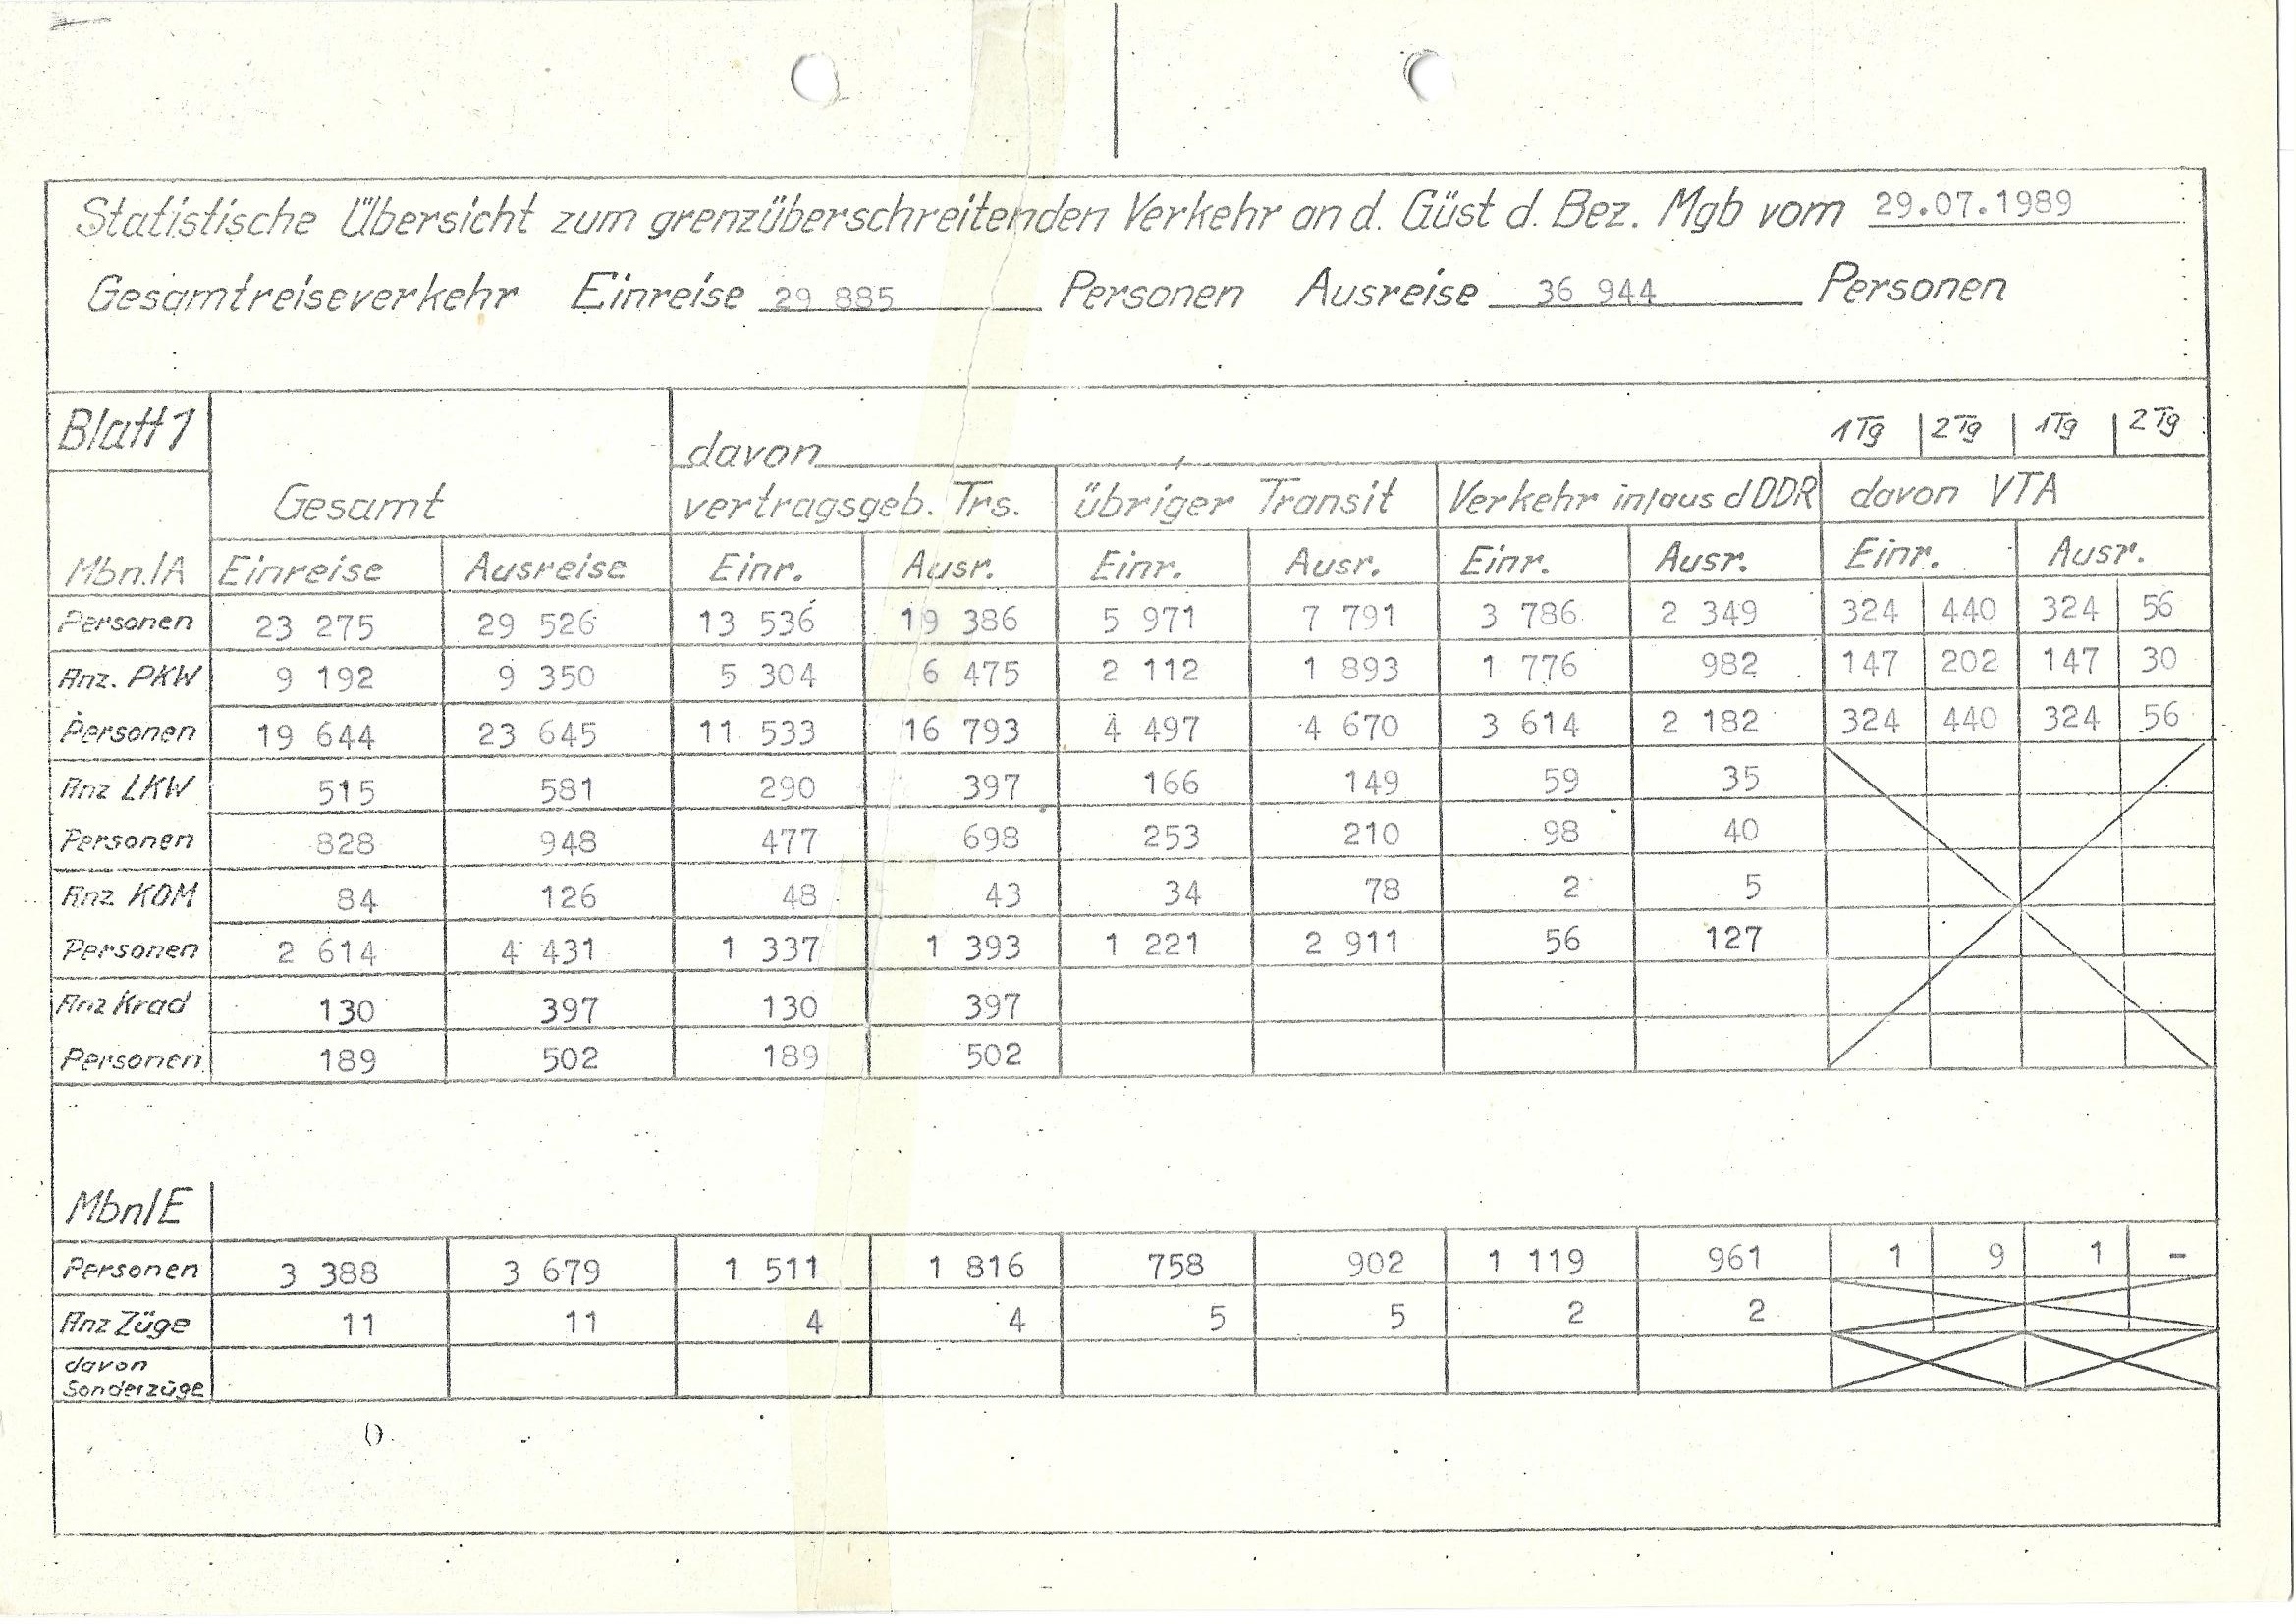 Statistische Übersicht zum grenzüberschreitenden Verkehr an d. Güst d. Bez. Mgb vom 29.07.1989
Gesamtreiseverkehr Einreise 29 885 Personen Ausreise 36 944 Personen
Blatt 1 davon 1Tg 2Tg 1Tg 2Tg
Gesamt vertragsgeb. Trs. übriger Transit Verkehr in/aus d DDR davon VTA
Mbn./A Einreise Ausreise Einr. Ausr. Einr. Ausr. Einr. Ausr. Einr. Ausr.
Personen 23 275 29 526 13 536 19 386 5 971 7 791 3 786 2 349 324 440 324 56
Anz. PKW 9 192 9 350 5 304 6 475 2 112 1 893 1 776 982 147 202 147 30
Personen 19 644 23 645 11 533 16 793 4 497 4 670 3 614 2 182 324 440 324 56
Anz LKW 515 581 290 397 166 149 59 35
Personen 828 948 477 698 253 210 98 40
Anz KOM 84 126 48 43 34 78 2 5
Personen 2 614 4 431 1 337 1 393 1 221 2 911 56 127
Anz Krad 130 397 130 397
Personen 189 502 189 502
Mbn/E
Personen 3 388 3 679 1 511 1 816 758 902 1 119 961 1 9 1 -
Anz Züge 11 11 4 4 5 5 2 2
davon
Sonderzüge
()